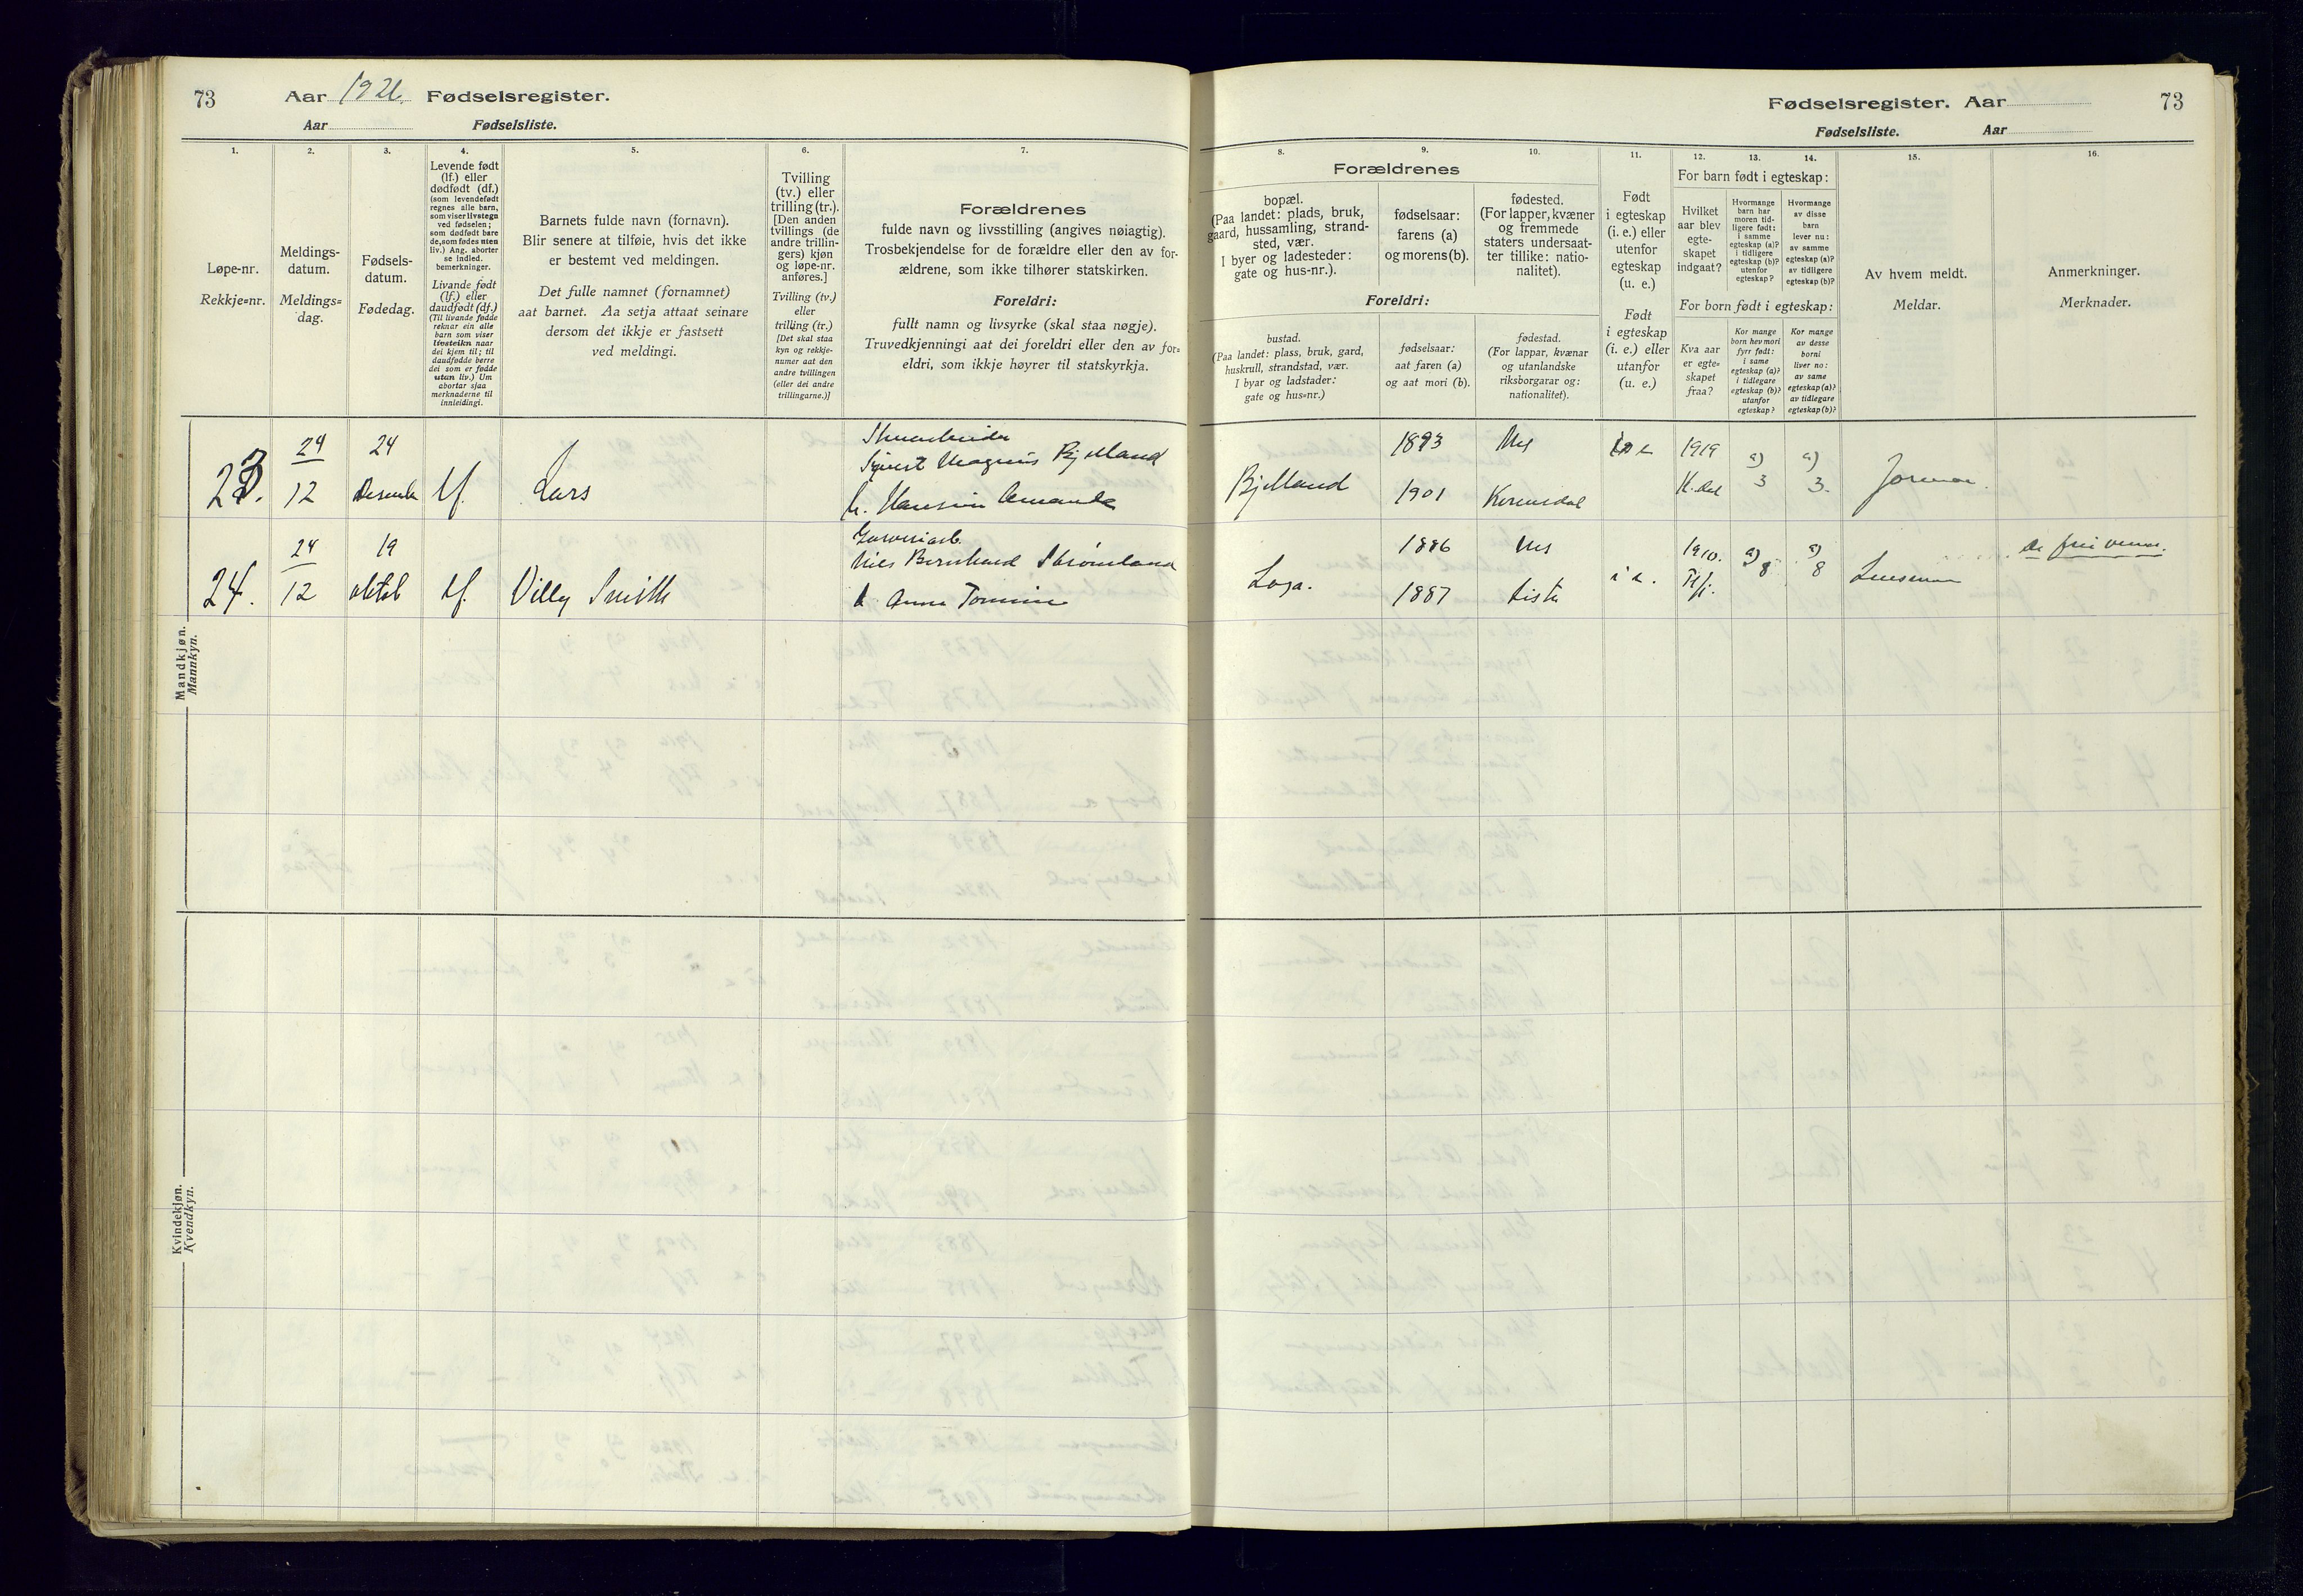 73
Aar 1926. Fødselsregister.
Aar Fødselsliste.
1.
2.
3.
4.
5.
6.
7.
Løpe-nr.
Rekkje=nr.
Meldings-
datum.
Meldings=
dag.
Fødsels-
datum.
Fødedag.
Levende født
(lf.) eller
dødfødt (df.)
(som levendefødt
regnes alle barn,
som viser livstegn
ved fødselen;
som dødfødt bare
de, som fødes uten
liv.) Ang. aborter
se indled.
bemerkninger.
Livande født
(lf.) eller
daudfødt (df.)
(Til livande fødde
reknar ein alle
barn som viser
livsteikn naar
dei kjem til; til
daudfødde berre
dei som er fødde
utan liv.) Um
abortar sjaa
merknaderne til
innleidingi.
Barnets fulde navn (fornavn).
Blir senere at tilføie, hvis det ikke
er bestemt ved meldingen.
Det fulle namnet (fornamnet)
aat barnet. Aa setja attaat seinare
dersom det ikkje er fastsett
ved meldingi.
Tvilling
(tv.) eller
trilling (tr.).
[Den anden
tvillings (de
andre trillin-
gers) kjøn
og løpe-nr.
anføres.]
Tvilling (tv.)
eller
trilling (tr.)
[Det skal staa
kyn og rekkje-
numer aat den
andre tvillingen
(eller dei andre
trillingarne.)]
Forældrenes
fulde navn og livsstilling (angives nøiagtig).
Trosbekjendelse for de forældre eller den av for-
ældrene, som ikke tilhører statskirken.
Foreldri:
fullt namn og livsyrke (skal staa nøgje).
Truvedkjenningi aat dei foreldri eller den av for=
eldri, som ikkje høyrer til statskyrkja.
Mandkjøn.
Mannkyn.
23.
24
12
24
Desember
lf.
Lars
Magnus Bjelland
24.
24
12
19
oktob
lf.
Villy Smith
Nils Bernhard Strømland
Anna Tomine
Kvindekjøn.
Kvendkyn.
Fødselsregister. Aar
73
Fødselsliste. Aar
8.
9.
10.
11.
12.
13.
14.
15.
16.
Forældrenes
bopæl.
(Paa landet: plads, bruk,
gaard, hussamling, strand-
sted, vær.
I byer og ladesteder:
gate og hus-nr.).
fødselsaar:
farens (a)
og morens (b).
fødested.
(For lapper, kvæner
og fremmede
staters undersaat-
ter tillike: natio-
nalitet).
Foreldri:
bustad.
(Paa landet: plass, bruk, gard,
huskrull, strandstad, vær.
I byar og ladstader:
gate og hus=nr.)
fødselsaar:
aat faren (a)
og aat mori (b).
fødestad.
(For lappar, kvænar
og utanlandske
riksborgarar og:
nationalitet).
Født
i egteskap
(i. e.) eller
utenfor
egteskap
(u. e.)
Født
i egteskap
(i. e.) eller
utanfor
(u. e.)
For barn født i egteskap:
Hvilket
aar blev
egte-
skapet
indgaat?
Hvormange
barn har
moren tid-
ligere født:
i samme
egteskap (a)?
i tidligere
egteskap (b)?
utenfor
egteskap?
Hvormange
av disse
barn
lever nu:
av samme
egteskap (a)?
av tidligere
egteskap (b)?
For born født i egteskap:
Kva aar
er egte=
skapet
fraa?
Kor mange
born hev mori
fyrr født:
i same
egteskap (a)?
i tidlegare
egteskap (b)?
utanfor
egteskap?
Kor mange
av desse
borni
liver no:
av same
egteskap (a)?
av tidlegare
egteskap (b)?
Av hvem meldt.
Meldar.
Anmerkninger.
Merknader.
Bjelland
1893
1901
Nes
i e
1919
a)
3
a)
3.
Jormor.
Loga.
1886
1887
Nes
Lista
i e.
1910.
a)
8
a)
8
Lensman
De frie venner.